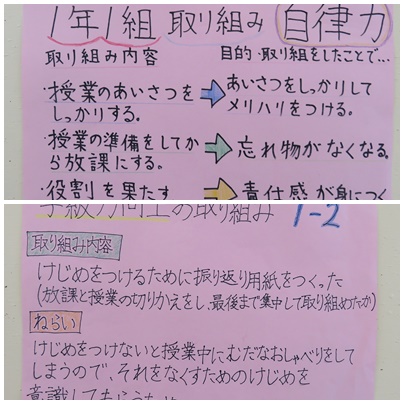 1年1組 取り組み 自律力
取り組み内容 目的・取組をしたことで…
・授業のあいさつを しっかりする。 → あいさつをしっかりして メリハリをつける。
・授業の準備をしてか ら放課にする。 → 忘れ物がなくなる。
・役割を果たす → 責任感が身につく
学級力向上の取り組み 1-2
取り組み内容
けじめをつけるために振り返り用紙をつくった
(放課と授業の切りかえをし、最後まで集中して取り組めたか)
ねらい
けじめをつけないと授業中にむだなおしゃべりをして
しまうので、それをなくすためのけじめを
意識してもらうため